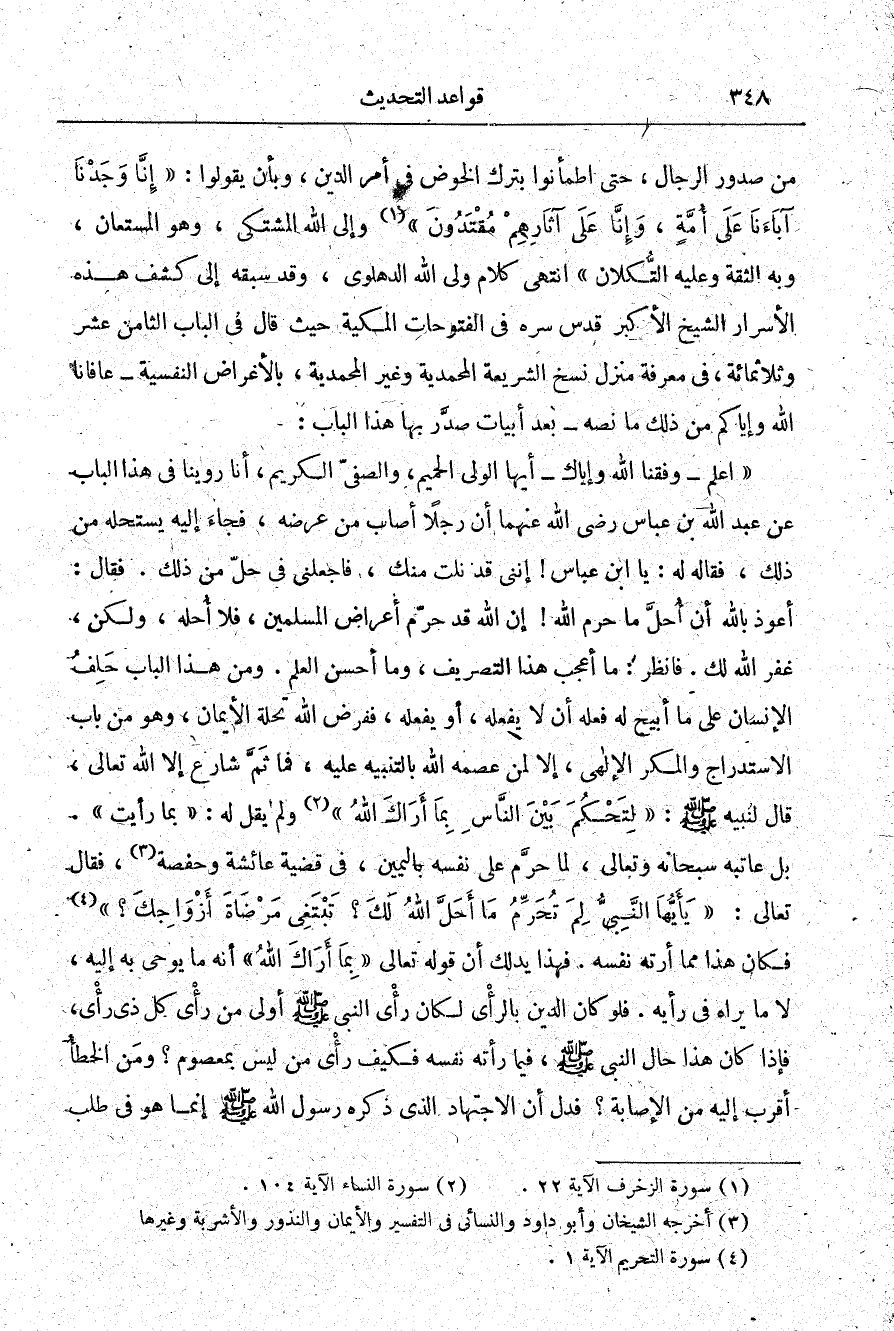 ٣٤٨ قواعد التحديث
من صدور الرجال ، حتى اطمأنوا بترك الخوض في أمر الدين ، وبأن يقولوا : « إِنَّا وَجَدْنَا
آبَاءَنَا عَلَى أُمَّةٍ ، وَإِنَّا عَلَى آثَارِهِمْ مُقْتَدُونَ »(١) وإلى الله المشتكى ، وهو المستعان ،
وبه الثقة وعليه التُّكلان » انتهى كلام ولى الله الدهلوى ، وقد سبقه إلى كشف هذه
الأسرار الشيخ الأكبر قدس سره فى الفتوحات المكية حيث قال فى الباب الثامن عشر
وثلاثمائة ، فى معرفة منزل نسخ الشريعة المحمدية وغير المحمدية ، بالأغراض النفسية ـ عافانا
الله وإياكم من ذلك ما نصه ـ بعد أبيات صدَّر بها هذا الباب :
« اعلم ـ وفقنا الله وإياك ـ أيها الولى الحميم ، والصفىّ الكريم ، أنا روينا فى هذا الباب
عن عبد الله بن عباس رضى الله عنهما أن رجلًا أصاب من عرضه ، فجاء إليه يستحله من
ذلك ، فقاله له : يا ابن عباس ! إننى قد نلت منك ، فاجعلنى فى حلّ من ذلك . فقال :
أعوذ بالله أن أُحلَّ ما حرم الله ! إن الله قد حرّم أعراض المسلمين ، فلا أُحله ، ولكن ،
غفر الله لك . فانظر : ما أعجب هذا التصريف ، وما أحسن العلم . ومن هذا الباب حَلِفُ
الإنسان على ما أبيح له فعله أن لا يفعله ، أو يفعله ، ففرض الله تحلة الأيمان ، وهو من باب
الاستدراج والمكر الإلهى ، إلا لمن عصمه الله بالتنبيه عليه ، فما ثَمَّ شارع إلا الله تعالى ،
قال لنبيه ﷺ : « لِتَحْكُمَ بَيْنَ النَّاسِ بِمَا أَرَاكَ اللهُ »(٢) ولم يقل له : « بما رأيت » .
بل عاتبه سبحانه وتعالى ، لما حرَّم على نفسه باليمين ، فى قضية عائشة وحفصة(٣) ، فقال
تعالى : « يَأَيُّهَا النَّبِيُّ لِمَ تُحَرِّمُ مَا أَحَلَّ اللهُ لَكَ ؟ تَبْتَغِى مَرْضَاةَ أَزْوَاجِكَ ؟ »(٤)
فكان هذا مما أرته نفسه . فهذا يدلك أن قوله تعالى « بِمَا أَرَاكَ اللهُ » أنه ما يوحى به إليه ،
لا ما يراه فى رأيه . فلو كان الدين بالرأْى لكان رأْى النبى ﷺ أولى من رأْى كل ذى رأْى ،
فإذا كان هذا حال النبى ﷺ ، فيما رأته نفسه فكيف رأْى من ليس بمعصوم ؟ ومَن الخطأُ
أقرب إليه من الإصابة ؟ فدل أن الاجتهاد الذى ذكره رسول الله ﷺ إنما هو فى طلب
(١) سورة الزخرف الآية ٢٢ . (٢) سورة النساء الآية ١٠٤ .
(٣) أخرجه الشيخان وأبو داود والنسائى فى التفسير والأيمان والنذور والأشربة وغيرها
(٤) سورة التحريم الآية ١ .